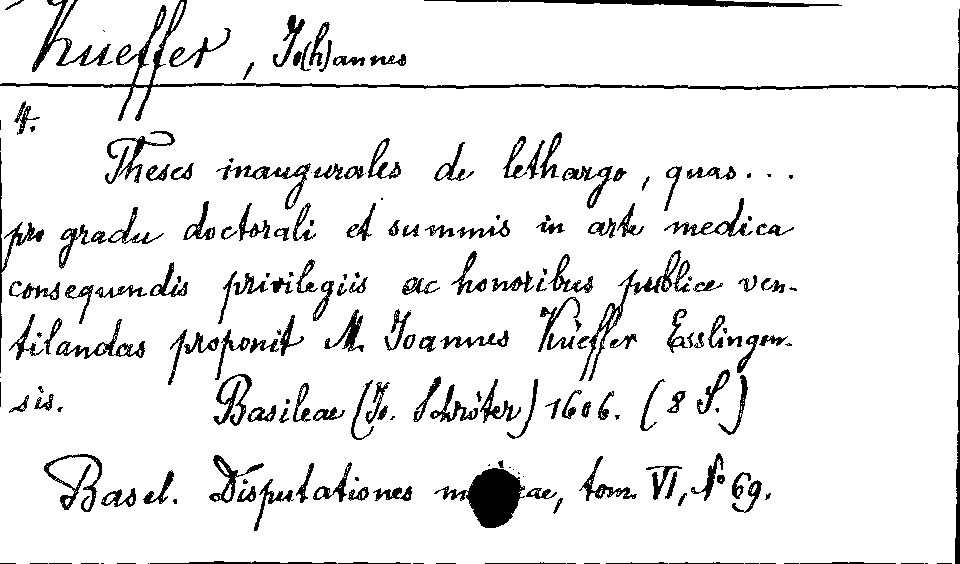 Küeffer, Jo(h)annes
4.
Theses inaugurales de lethargo, quas...
pro gradu doctorali et summis in arte medica
consequendis privilegiis ac honoribus publice ven-
tilandas proponit M. Joannes Küeffer Esslingen-
sis. Basileae (Jo. Schröter) 1606. (8 S.)
Basel. Disputationes tom. VI, No 69.